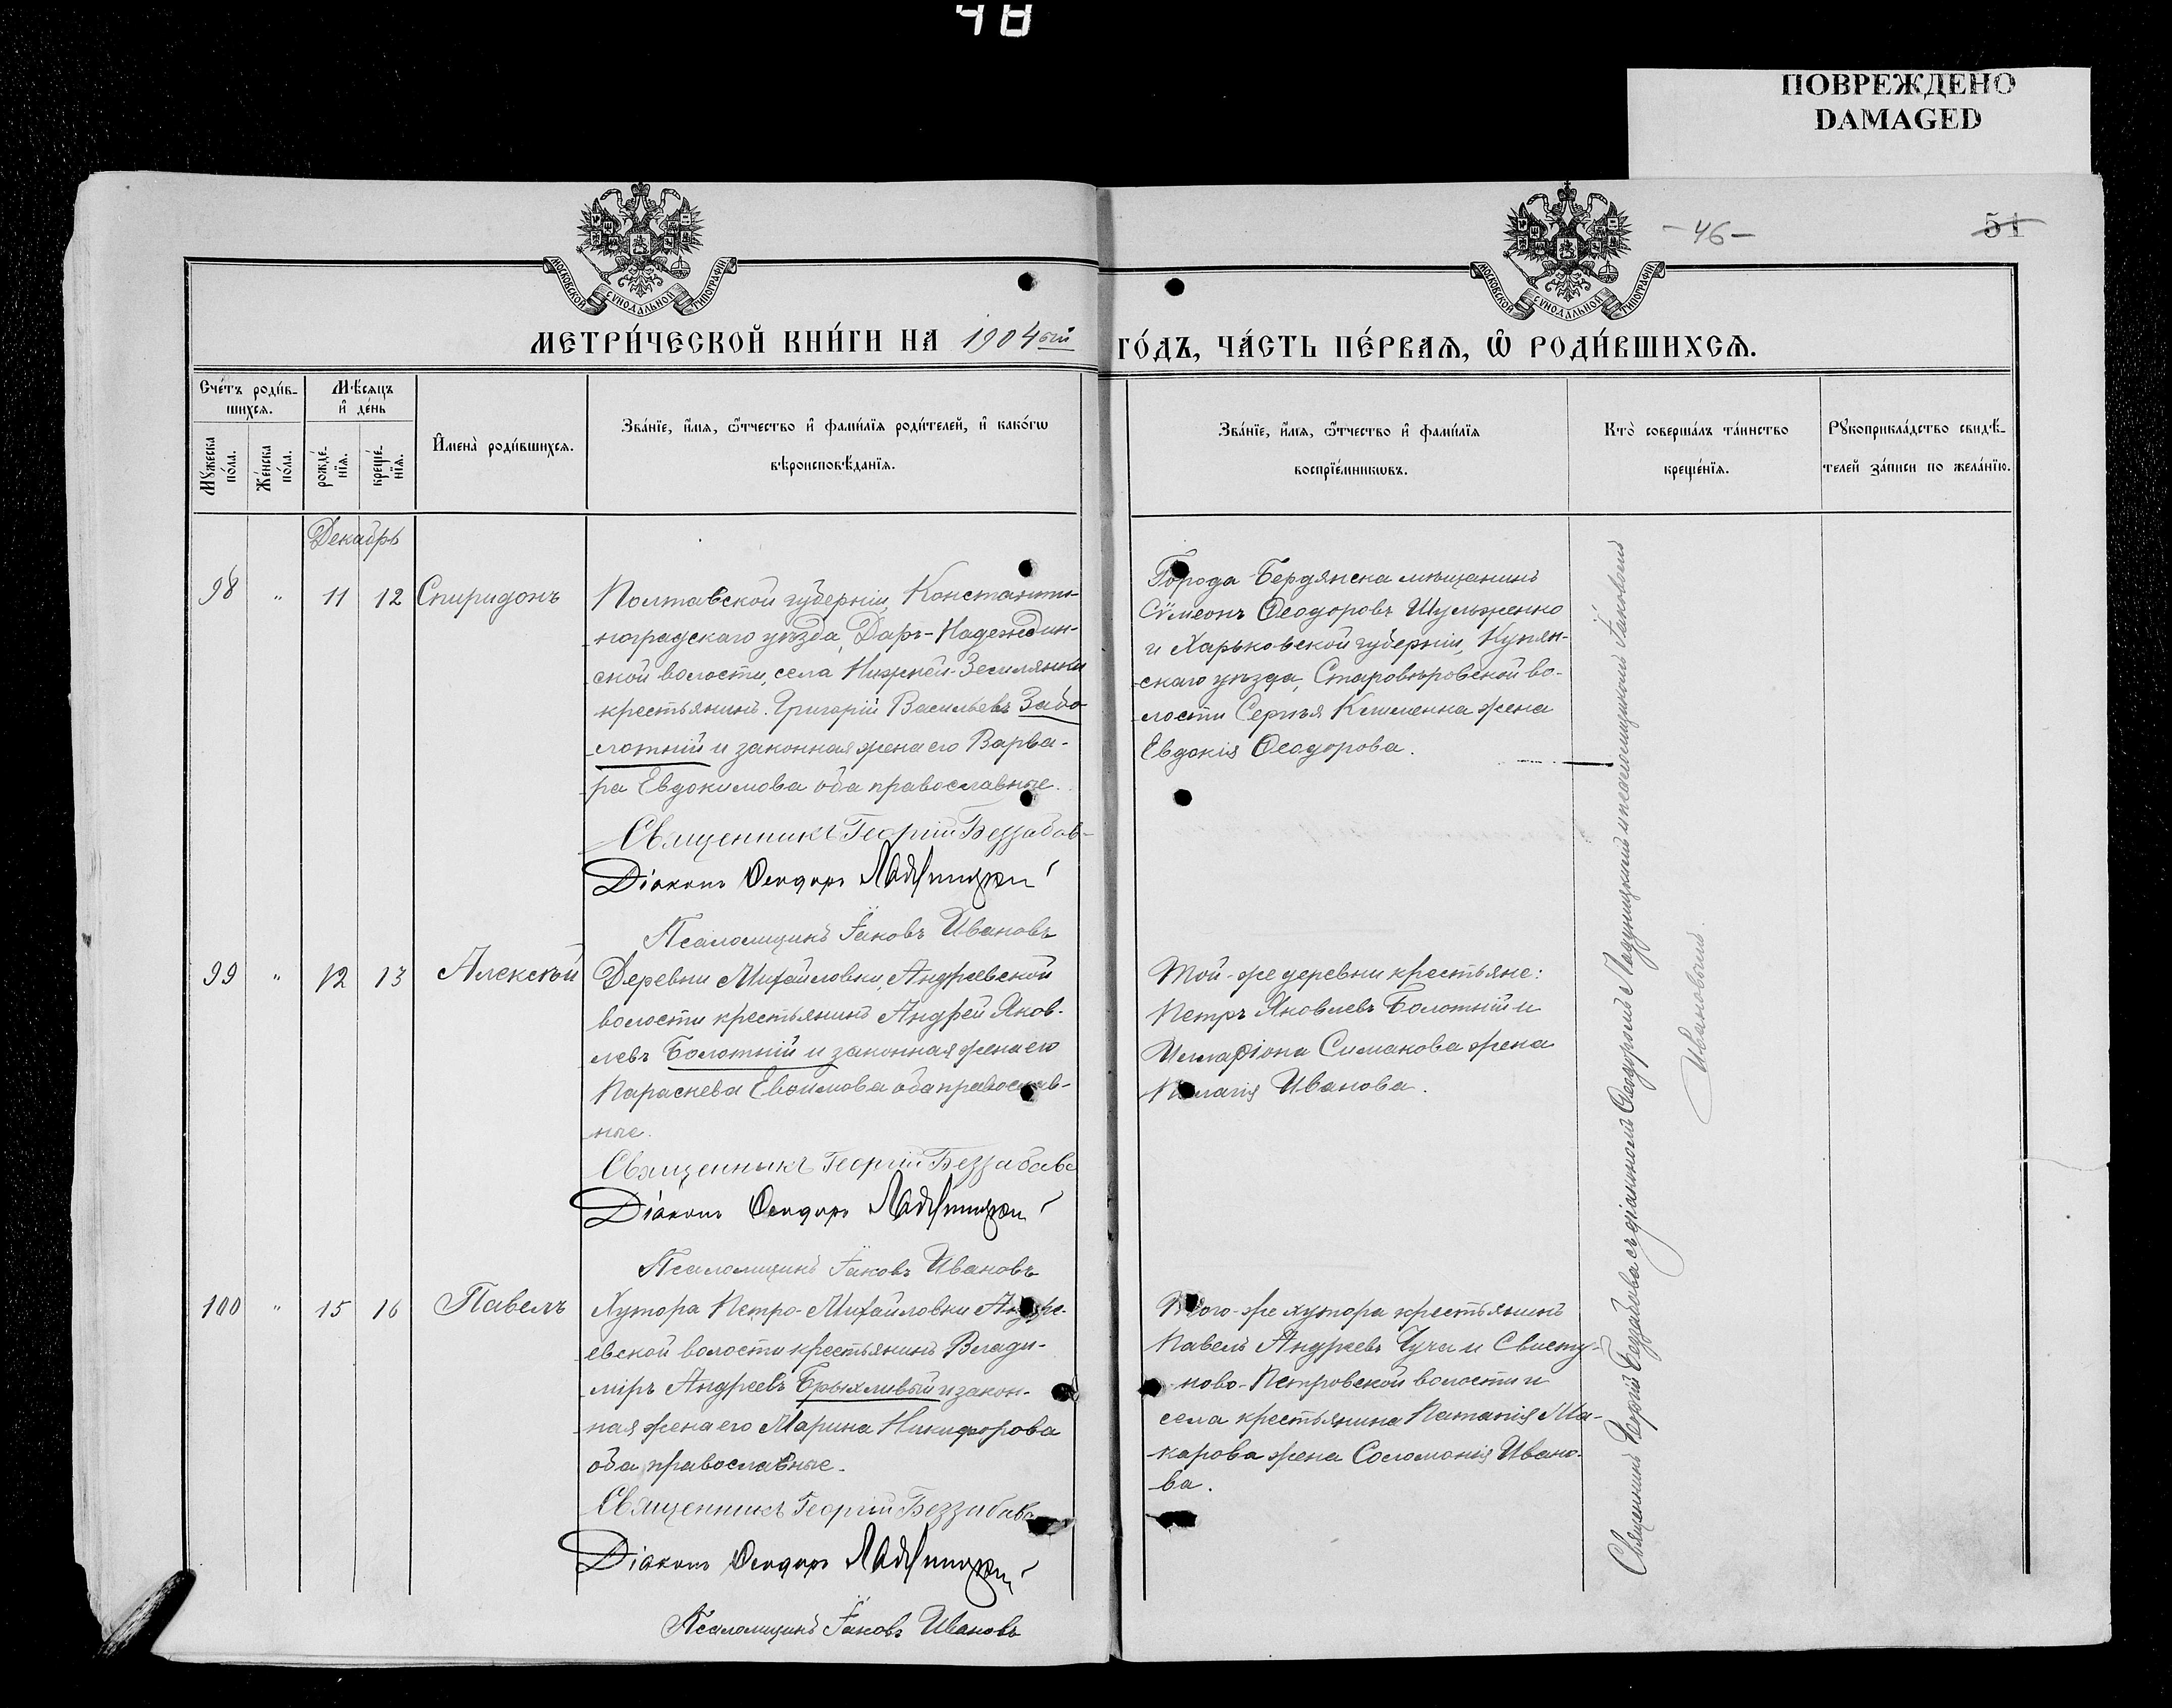 48
ПОВРЕЖДЕНО
DAMAGED
МОСКОВСКОЙ СѴНОДАЛЬНОЙ ТИПОГРАФІИ.
МОСКОВСКОЙ СѴНОДАЛЬНОЙ ТИПОГРАФІИ.
- 46 -
51
МЕТРИ́ЧЕСКОЙ КНИ́ГИ НА 1904ый
ГО́ДЪ, ЧА́СТЬ ПЕ́РВАЯ, Ѡ҆ РОДИ́ВШИХСЯ.
Сче́тъ роди́в-
шихся.
Мꙋ́жеска по́ла.
Же́нска по́ла.
Мѣ́сяцъ
и҆ де́нь
рожде́-
нїя.
креще́-
нїя.
И҆мена̀ роди́вшихся.
Зва́нїе, и҆́мя, ѻ҆́тчество и҆ фами́лїя роди́телей, и҆ како́гѡ
вѣроисповѣ́данїя.
Зва́нїе, и҆́мя, ѻ҆́тчество и҆ фами́лїя
воспрїе́мникѡвъ.
Кто̀ соверша́лъ та́инство
креще́нїя.
Рꙋкоприкла́дство свидѣ́-
телей за́писи по жела́нїю.
Декабрь
98 " 11 12 Спиридонъ
Полтавской губерніи, Константи-
ноградскаго уѣзда, Даръ-Надеждин-
ской волости, села Нижней-Землянки
крестьянинъ Григорій Васильевъ Забо-
лотній и законная жена его Варва-
ра Евдокимова оба православные.
Священникъ Георгій Беззабав
Діаконъ Ѳеодоръ
Псаломщикъ Іаковъ Ивановъ
Города Бердянска мѣщанинъ
Сѵмеонъ Ѳеодоровъ Шульженко
и Харьковской губерніи, Купян-
скаго уѣзда, Старовѣровской во-
лости Сергѣя Клименка жена
Евдокія Ѳеодорова.
99 " 12 13 Алексѣй
Деревни Михайловки, Андреевской
волости крестьянинъ Андрей Яков-
левъ Болотній и законная жена его
Параскева Евѳимова оба православ-
ные.
Священникъ Георгій Беззабава
Діаконъ Ѳеодоръ
Псаломщикъ Іаковъ Ивановъ
Той-же деревни крестьяне:
Петръ Яковлевъ Болотній и
Илларіона Симакова жена
Пелагія Иванова.
100 " 15 16 Павелъ
Хутора Петро-Михайловки Андре-
евской волости крестьянинъ Влади-
міръ Андреевъ Брыхливый и закон-
ная жена его Марина Никифорова
оба православные.
Священникъ Георгій Беззабава
Діаконъ Ѳеодоръ
Псаломщикъ Іаковъ Ивановъ
Того-же хутора крестьянинъ
Павелъ Андреевъ Чуча и Свисту-
ново-Петровской волости и
села крестьянина Потапія Ма-
карова жена Соломонія Ивано-
ва.
Священникъ Георгій Беззабава съ діакономъ Ѳеодоромъ и псаломщикомъ Іаковомъ
Ивановымъ.